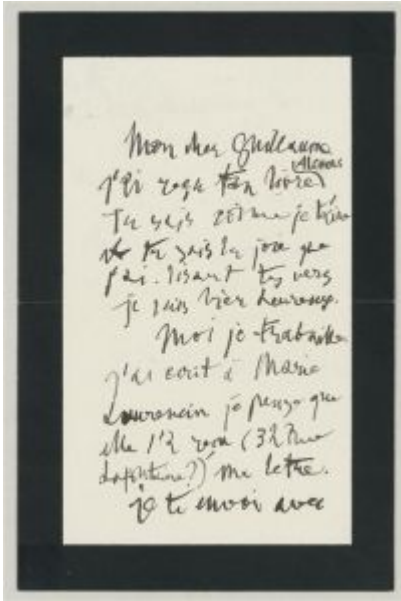 Mon cher Guillaume
j'ai reçu ton livre Alcools
Tu sais comme je t'aime
tu sais la joie que
j'ai lisant tes vers
je suis bien heureux.
Moi je travaille
j'ai ecrit à Marie
Laurencin je pense que
elle l'a reçu (32 rue
Lafontaine?) ma letre.
je te envoi avec